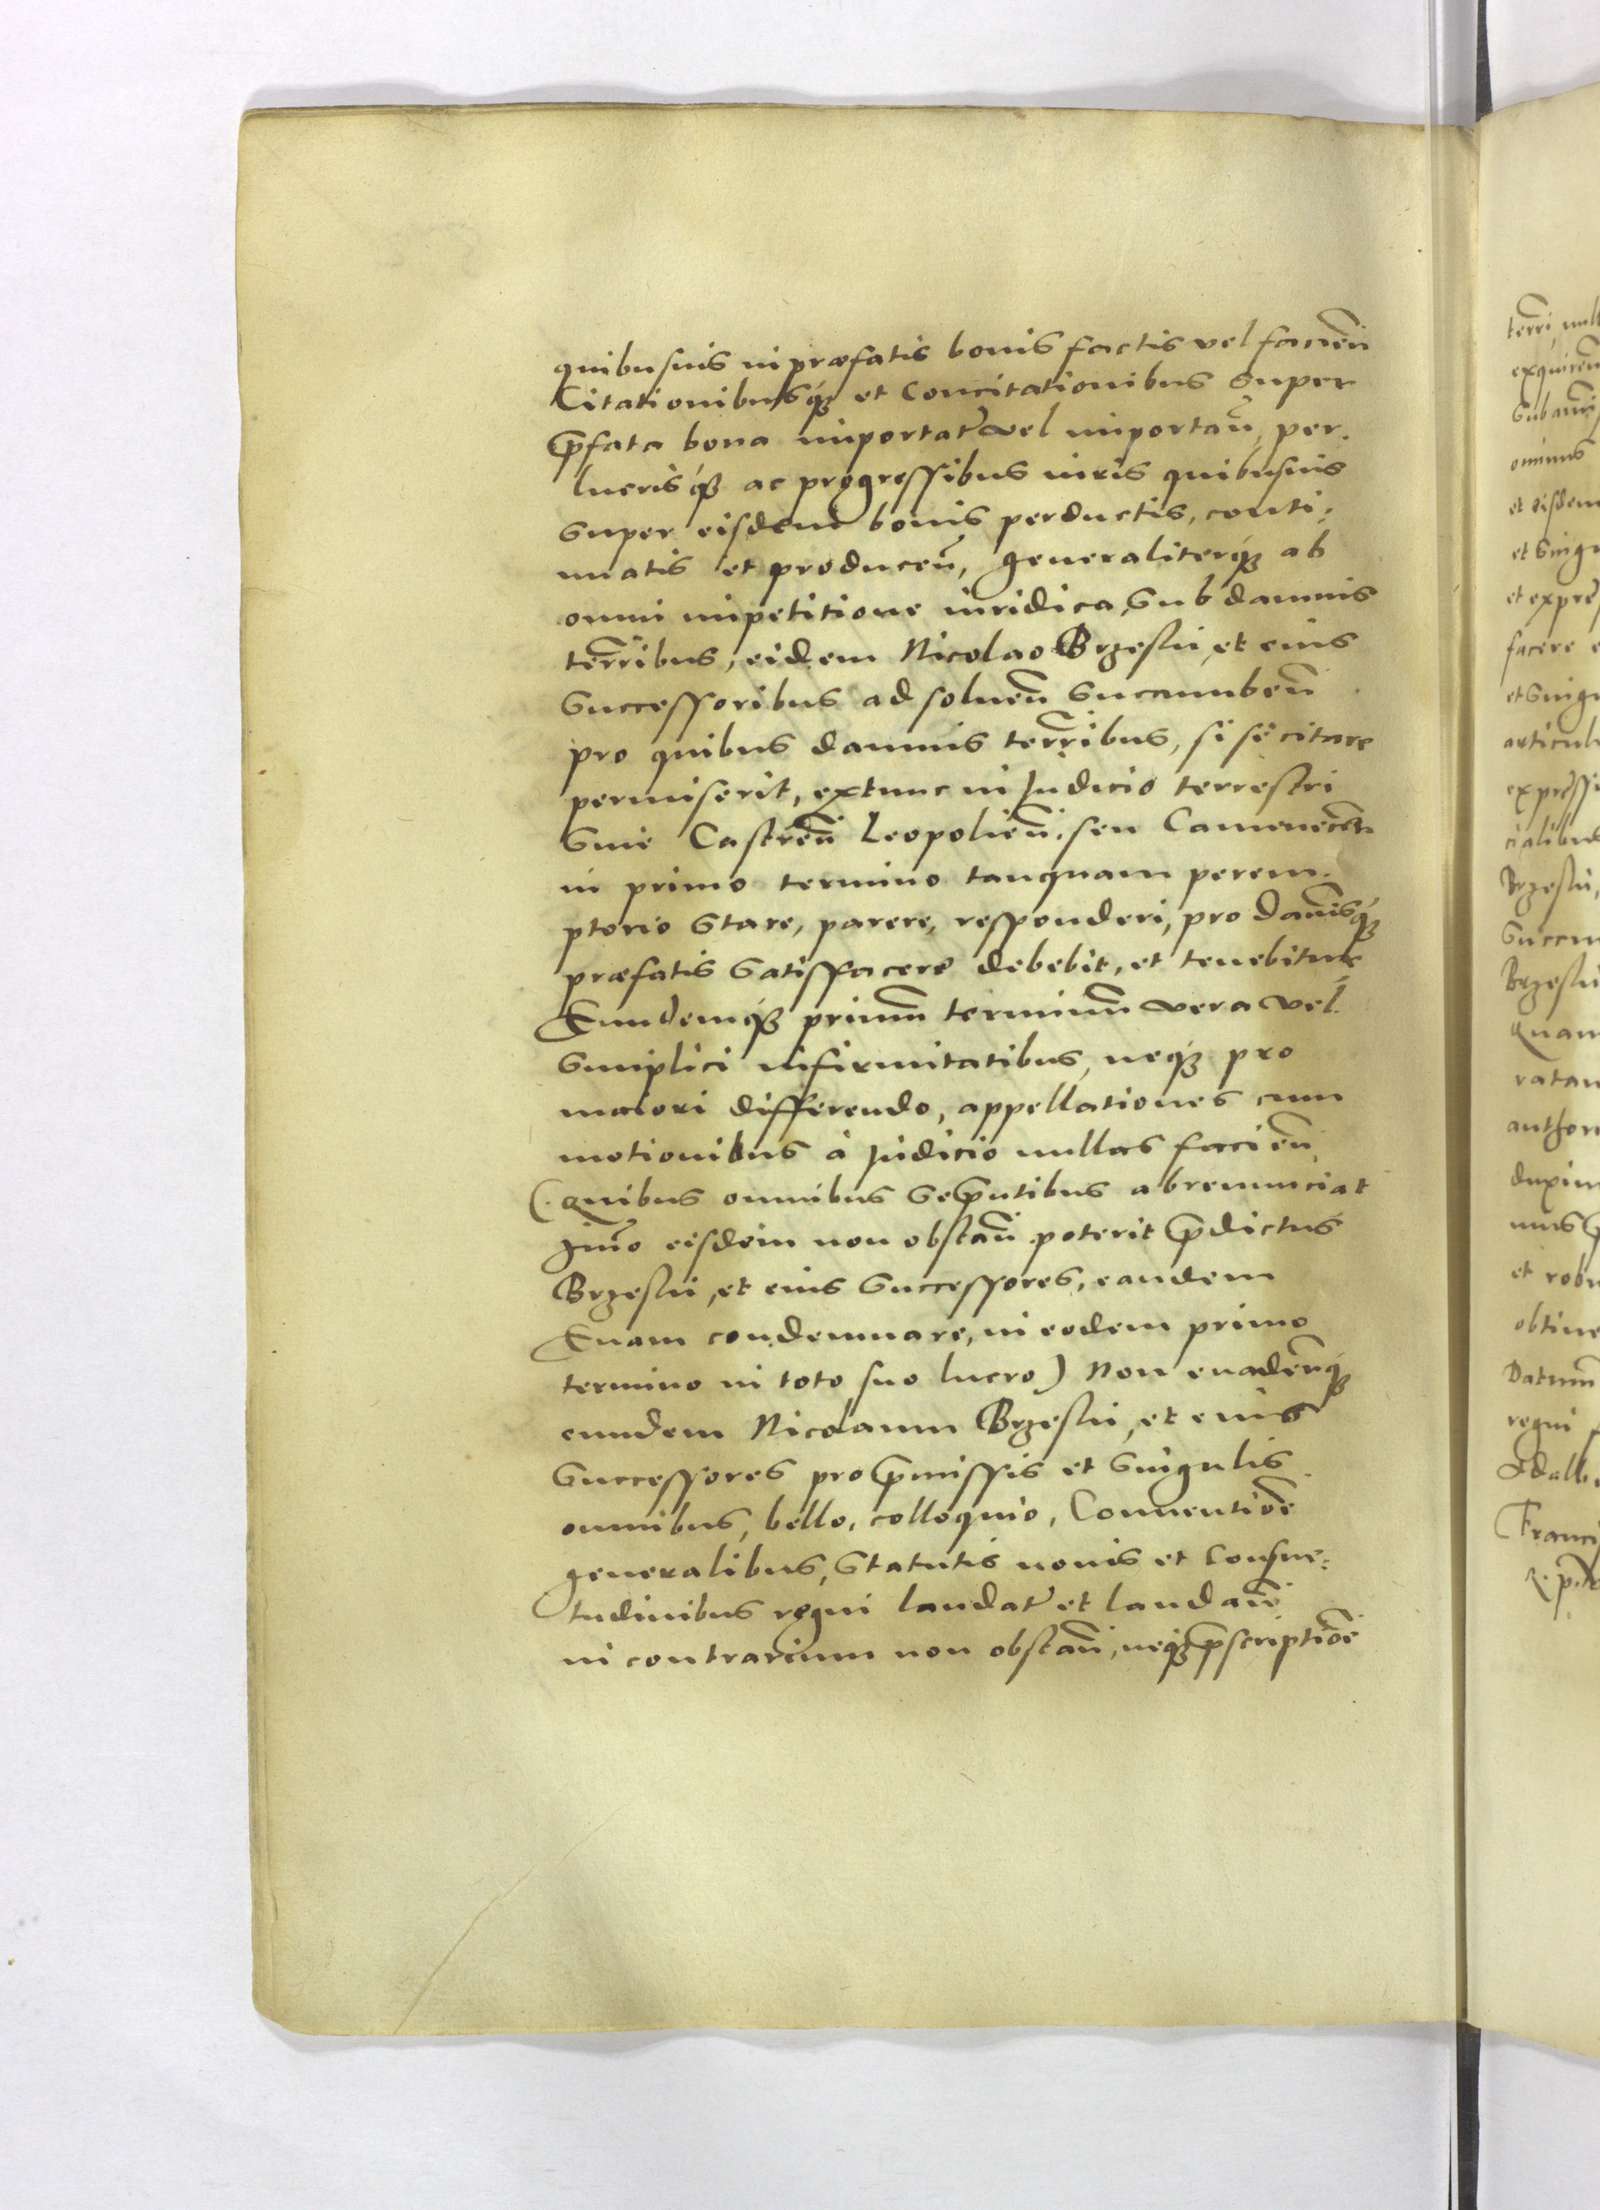 quibusuis in præfatis bonis factis vel facien̄
Citationibusq́ꝫ et Concitationibus super
p̄fata bona importat̄ vel importan̄, per-
lucrisq́ꝫ ac progressibus iuris quibusuis
super eisdem bonis perductis, conti-
nuatis et producen̄, generaliterq́ꝫ ab
omni impetitione iuridica, sub damnis
terr̄ibus, eidem Nicolao Brzeski, et eius
Successoribus ad soluen̄ succumben̄
pro quibus damnis terr̄ibus, si sè citare
permiserit, extunc in Iudicio terrestri
siuè Castren̄ Leopolien̄. seu Camenecen̄
in primo termino tanquam perem-
ptorio stare, parere, responderi, pro dam̄isq́ꝫ
præfatis satisfacere debebit, et tenebitur
Eundemq́ꝫ primum̄ terminum̄ vera vel
simplici infirmitatibus, neq́ꝫ pro
maiori differendo, appellationes cum
motionibus à Iudicio nullas facien̄
(. Quibus omnibus sep̄entibus abrenunciat
Imò eisdem non obstan̄ poterit p̄dictus
Brzeski, et eius Successores, eandem
Euam condemnare, in eodem primo
termino in toto suo lucro) Non euaden̄q́ꝫ
eundem Nicolaum Brzeski, et eius
Successores pro p̄missis et singulis
omnibus, bello, colloquio, Conuention̄e
generalibus, Statutis nouis et Consue-
tudinibus regni laudat̄ et laudan̄
in contrarium non obstan̄, neq́ꝫ p̄scription̄e
terr̄i, null
exquiren̄
omnius
et eisdem
et singu
et expres
facere e
et singu
articul
expressi
cialibus
Brzeski,
Succu
Brzeski
Quam
ratam
author
duxim
et robu
obtine
Datum̄
regni
Adalb
Franci